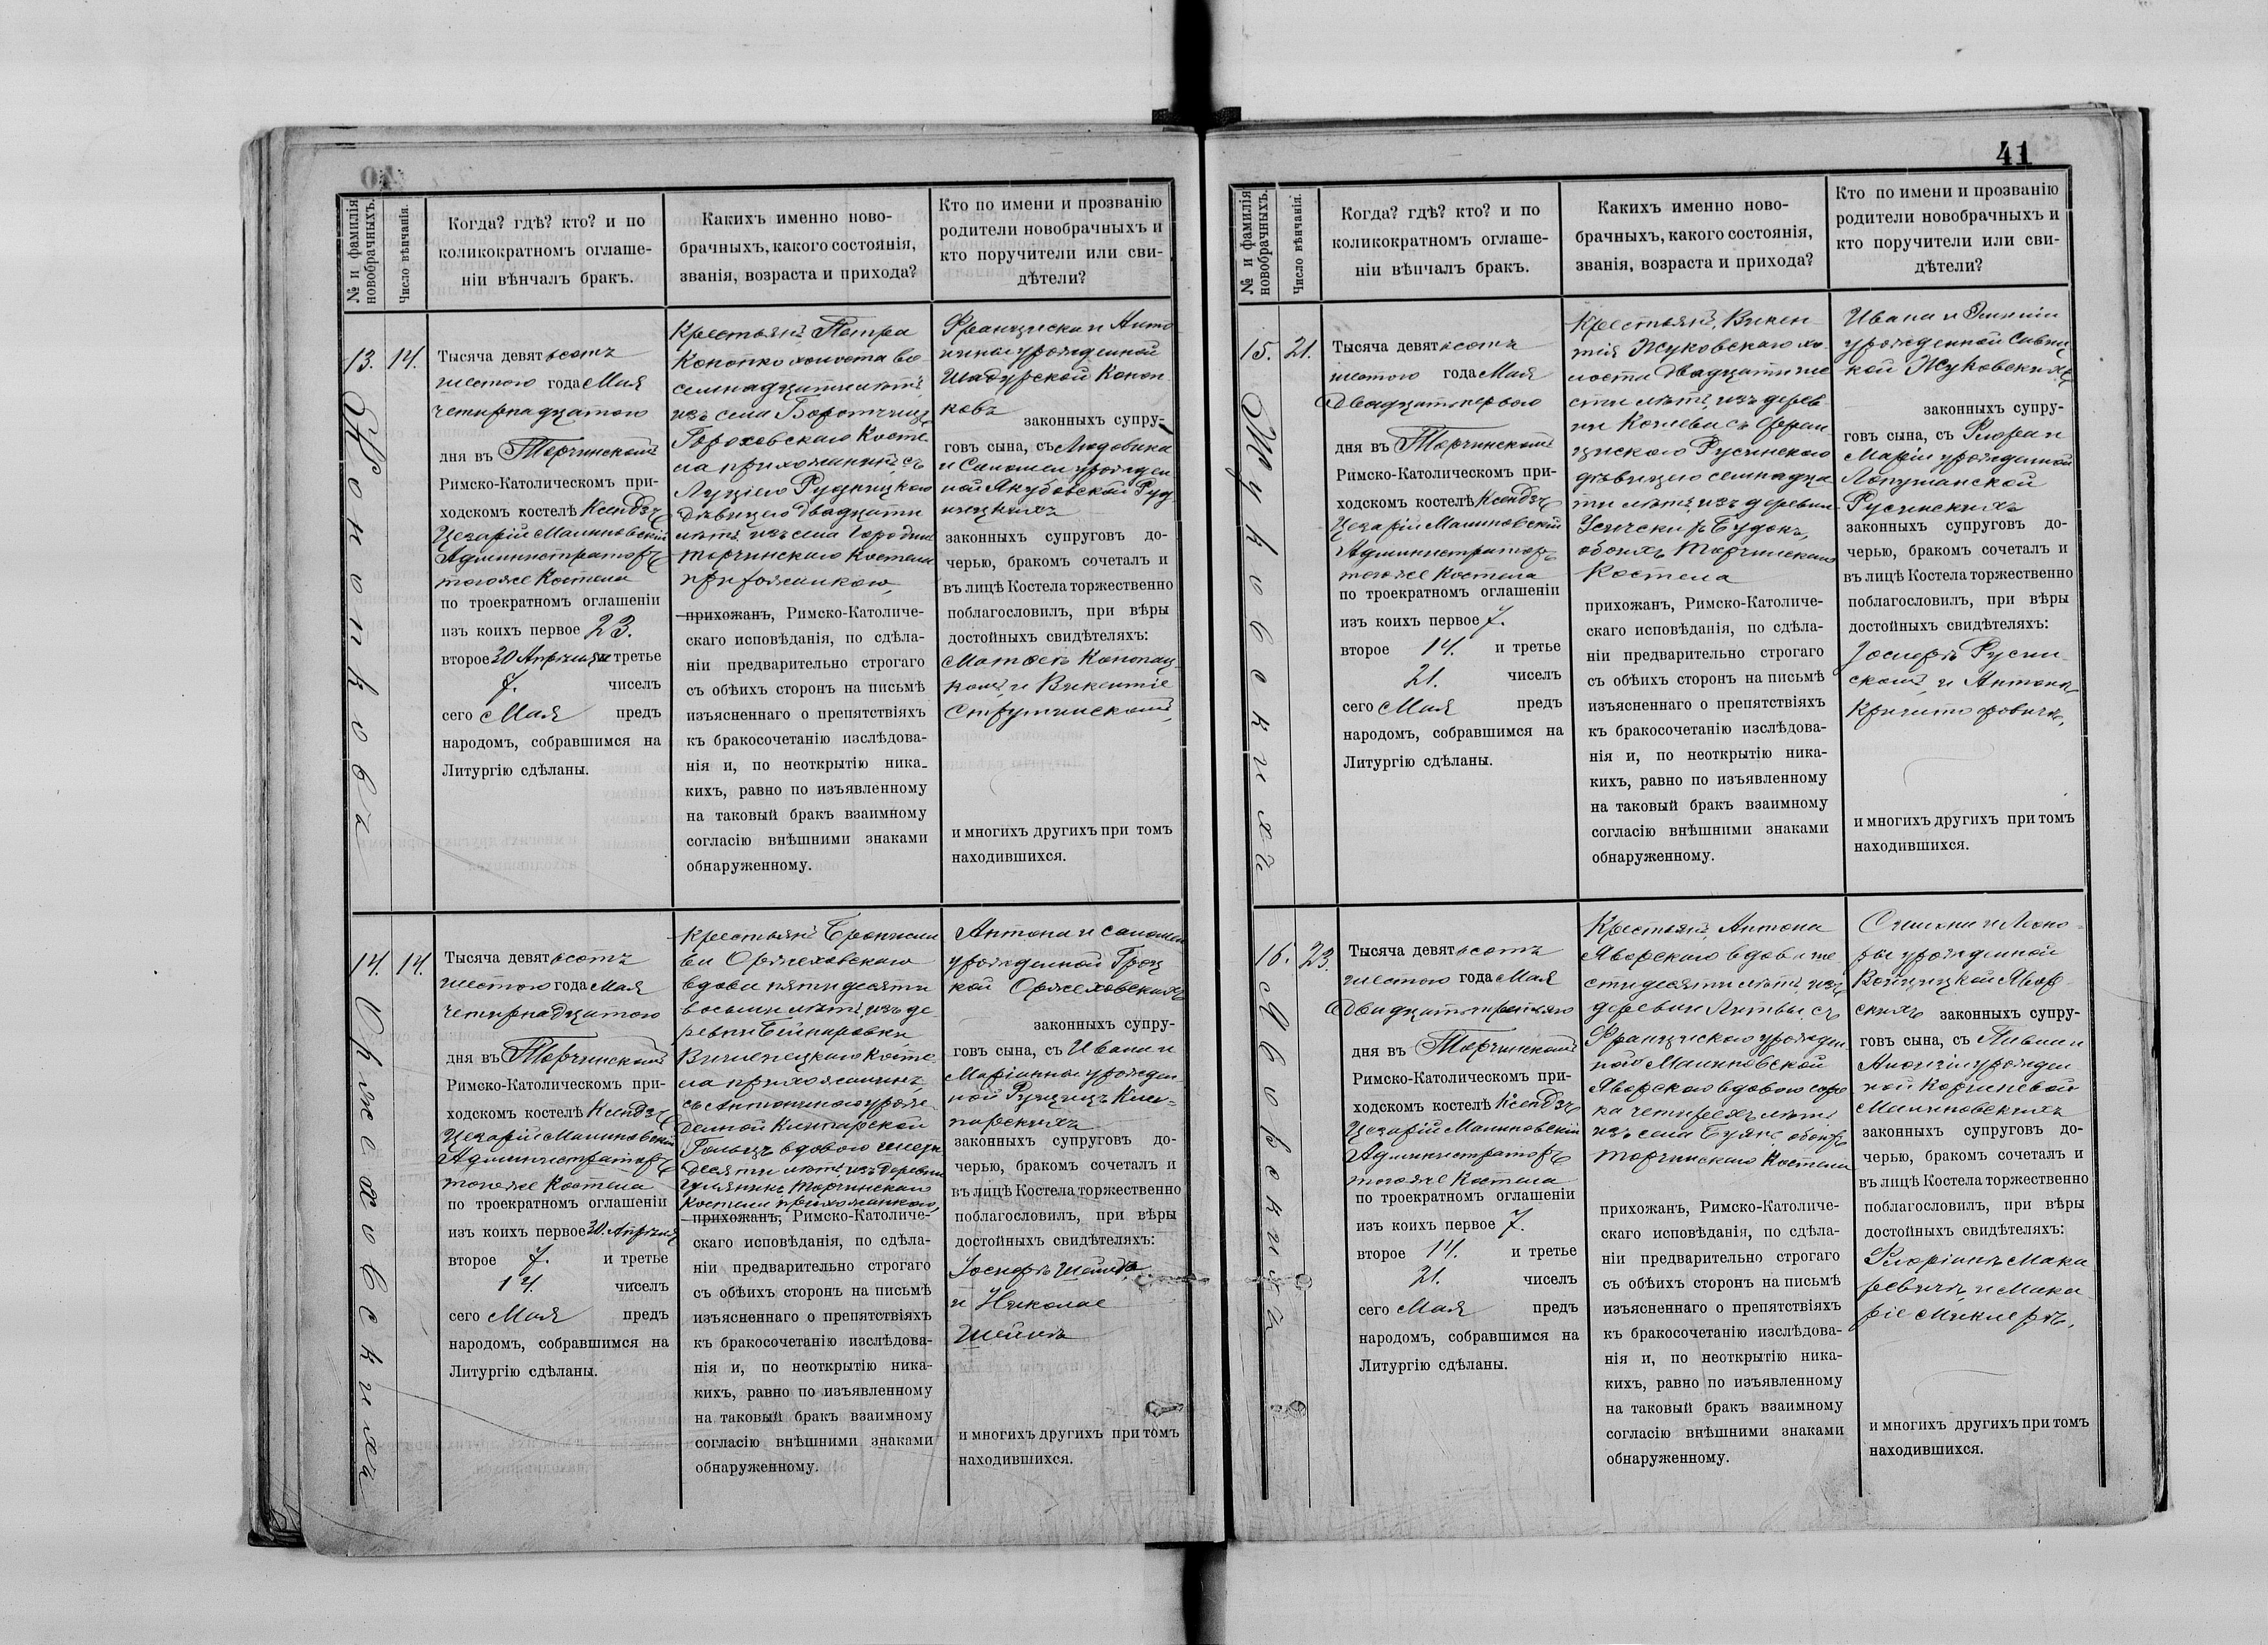 41
№ и фамилія
новобрачныхъ.
Число вѣнчанія.
Когда? гдѣ? кто? и по
коликократномъ оглаше-
ніи вѣнчалъ бракъ.
Какихъ именно ново-
брачныхъ, какого состоянія,
званія, возраста и прихода?
Кто по имени и прозванію
родители новобрачныхъ и
кто поручители или сви-
дѣтели?
13.
Конопковъ
14.
Тысяча девятьсотъ
шестого года Мая
четырнадцатого
дня въ Торчинскомъ
Римско-Католическомъ при-
ходскомъ костелѣ Ксендзъ
Цезарій Малиновскій
Администраторъ
тогоже Костела
по троекратномъ оглашеніи
изъ коихъ первое 23.
второе 30 Апрѣля и третье
7. чиселъ
сего Мая предъ
народомъ, собравшимся на
Литургію сдѣланы.
Крестьянъ Петра
Конопко холоста во-
семнадцати лѣтъ,
изъ села Боротчицъ
Гороховскаго Косте-
ла прихожанинъ, съ
Луціею Рудницкою
дѣвицею двадцати
лѣтъ, изъ села Городни
Торчинскаго Костела
прихожанкою,
прихожанъ, Римско-Католиче-
скаго исповѣданія, по сдѣла-
ніи предварительно строгаго
съ обѣихъ сторонъ на письмѣ
изъясненнаго о препятствіяхъ
къ бракосочетанію изслѣдова-
нія и, по неоткрытію ника-
кихъ, равно по изъявленному
на таковый бракъ взаимному
согласію внѣшними знаками
обнаруженному.
Франциска и Анто-
нины урожденной
Шадурской Коноп-
ковъ
законныхъ супру-
говъ сына, съ Людовика
и Саломеи урожден-
ной Якубовской Руд-
ницкихъ
законныхъ супруговъ до-
черью, бракомъ сочеталъ и
въ лицѣ Костела торжественно
поблагословилъ, при вѣры
достойныхъ свидѣтеляхъ:
Матѳеѣ Конопац-
комъ, и Викентіе
Струтинскомъ,
и многихъ другихъ при томъ
находившихся.
14.
Оржеховскихъ
14.
Тысяча девятьсотъ
шестого года Мая
четырнадцатого
дня въ Торчинскомъ
Римско-Католическомъ при-
ходскомъ костелѣ Ксендзъ
Цезарій Малиновскій
Администраторъ
тогоже Костела
по троекратномъ оглашеніи
изъ коихъ первое 30. Апрѣля
второе 7. и третье
14. чиселъ
сего Мая предъ
народомъ, собравшимся на
Литургію сдѣланы.
Крестьянъ Бронисла-
ва Оржеховскаго
вдовы пятидесяти
восьми лѣтъ, изъ де-
ревни
костела прихожанинъ,
съ Антониною урож-
денной Кляпарской
вдовою шести-
десяти лѣтъ, изъ деревни
Торчинскаго
Костела прихожанкою,
прихожанъ, Римско-Католиче-
скаго исповѣданія, по сдѣла-
ніи предварительно строгаго
съ обѣихъ сторонъ на письмѣ
изъясненнаго о препятствіяхъ
къ бракосочетанію изслѣдова-
нія и, по неоткрытію ника-
кихъ, равно по изъявленному
на таковый бракъ взаимному
согласію внѣшними знаками
обнаруженному.
Антона и Саломеи
урожденной Гроц-
кой Оржеховскихъ
законныхъ супру-
говъ сына, съ Ивана и
Маріанны урожден-
ной
законныхъ супруговъ до-
черью, бракомъ сочеталъ и
въ лицѣ Костела торжественно
поблагословилъ, при вѣры
достойныхъ свидѣтеляхъ:
Іосифъ
и Николае
и многихъ другихъ при томъ
находившихся.
№ и фамилія
новобрачныхъ.
Число вѣнчанія.
Когда? гдѣ? кто? и по
коликократномъ оглаше-
ніи вѣнчалъ бракъ.
Какихъ именно ново-
брачныхъ, какого состоянія,
званія, возраста и прихода?
Кто по имени и прозванію
родители новобрачныхъ и
кто поручители или сви-
дѣтели?
15.
Жуковскихъ
21.
Тысяча девятьсотъ
шестого года Мая
Двадцатьперваго
дня въ Торчинскомъ
Римско-Католическомъ при-
ходскомъ костелѣ Ксендзъ
Цезарій Малиновскій
Администраторъ
тогоже Костела
по троекратномъ оглашеніи
изъ коихъ первое 7.
второе 14. и третье
21. чиселъ
сего Мая предъ
народомъ, собравшимся на
Литургію сдѣланы.
Крестьянъ, Викен-
тія Жуковскаго хо-
лоста двадцатише-
сти лѣтъ, изъ дерев-
ни съ Фран-
цискою Русинскою
дѣвицею семнадца-
ти лѣтъ, изъ деревни
Усическихъ Будокъ,
обоихъ Торчинскаго
Костела
прихожанъ, Римско-Католиче-
скаго исповѣданія, по сдѣла-
ніи предварительно строгаго
съ обѣихъ сторонъ на письмѣ
изъясненнаго о препятствіяхъ
къ бракосочетанію изслѣдова-
нія и, по неоткрытію ника-
кихъ, равно по изъявленному
на таковый бракъ взаимному
согласію внѣшними знаками
обнаруженному.
Ивана и Эмиліи
урожденной Савиц-
кой Жуковскихъ
законныхъ супру-
говъ сына, съ
Маріи урожденной
Лопушанской
Русинскихъ
законныхъ супруговъ до-
черью, бракомъ сочеталъ и
въ лицѣ Костела торжественно
поблагословилъ, при вѣры
достойныхъ свидѣтеляхъ:
Іосифѣ Русин-
скомъ, и Антонѣ
и многихъ другихъ при томъ
находившихся.
16.
Яворскихъ
23.
Тысяча девятьсотъ
шестого года Мая
Двадцатьтретьяго
дня въ Торчинскомъ
Римско-Католическомъ при-
ходскомъ костелѣ Ксендзъ
Цезарій Малиновскій
Администраторъ
тогоже Костела
по троекратномъ оглашеніи
изъ коихъ первое 7.
второе 14. и третье
21. чиселъ
сего Мая предъ
народомъ, собравшимся на
Литургію сдѣланы.
Крестьянъ, Антона
Яворскаго вдовы ше-
стидесяти лѣтъ, изъ
деревни Литвы, съ
Францискою урожден-
ной Малиновской
Яворскою вдовою соро-
ка четырехъ лѣтъ
изъ села Буяне, обоихъ
Торчинскаго Костела
прихожанъ, Римско-Католиче-
скаго исповѣданія, по сдѣла-
ніи предварительно строгаго
съ обѣихъ сторонъ на письмѣ
изъясненнаго о препятствіяхъ
къ бракосочетанію изслѣдова-
нія и, по неоткрытію ника-
кихъ, равно по изъявленному
на таковый бракъ взаимному
согласію внѣшними знаками
обнаруженному.
Симона и Леоно-
ры урожденной
Войцицкой Явор-
скихъ законныхъ супру-
говъ сына, съ
урожден-
ной
Малиновскихъ
законныхъ супруговъ до-
черью, бракомъ сочеталъ и
въ лицѣ Костела торжественно
поблагословилъ, при вѣры
достойныхъ свидѣтеляхъ:
Флоріанъ Мака-
ревичъ, и Мака-
ріе
и многихъ другихъ при томъ
находившихся.